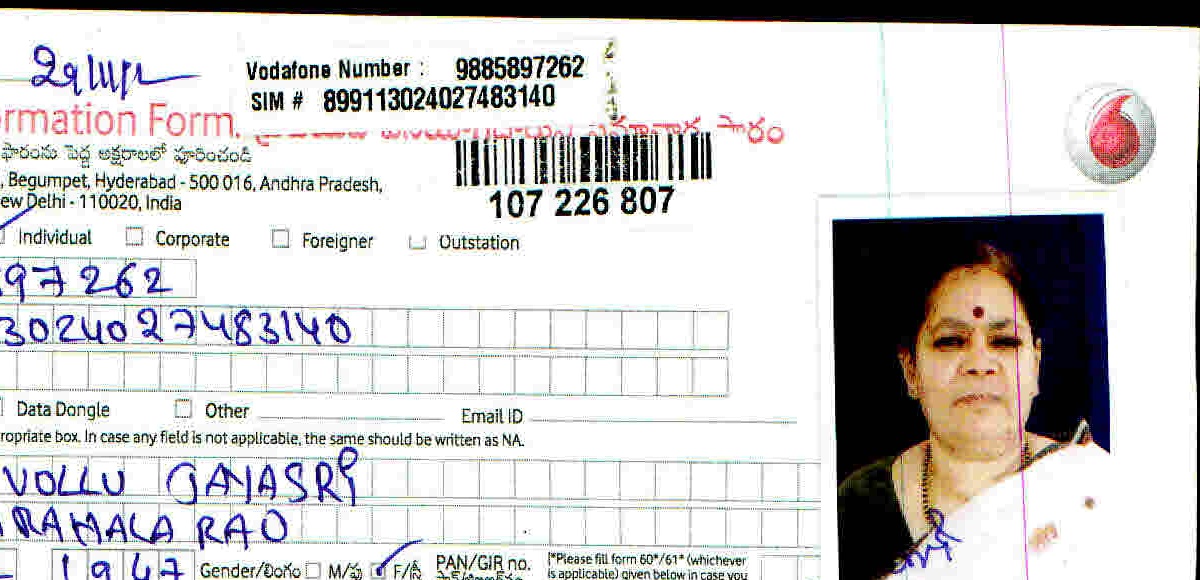 29/11/12
Vodafone Number : 9885897262
SIM # 899113024027483140
rmation Form.
ఫారంను పెద్ద అక్షరాలలో పూరించండి
, Begumpet, Hyderabad - 500 016, Andhra Pradesh,
ew Delhi - 110020, India
107 226 807
Individual Corporate Foreigner Outstation
97262
3024027483140
Data Dongle Other Email ID
ropriate box. In case any field is not applicable, the same should be written as NA.
VOLLU JAYASRI
RAMALA RAO
1947 Gender/లింగం M/పు F/స్త్రీ PAN/GIR no. [*Please fill form 60*/61* (whichever
is applicable) given below in case you